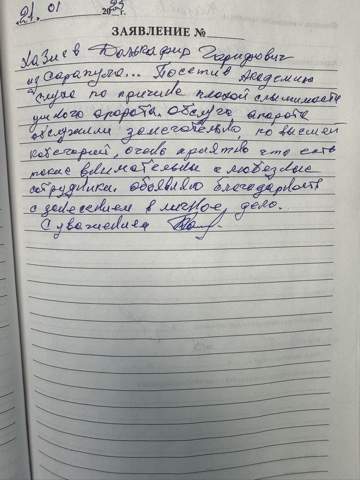 21. 01 20 25 г.
ЗАЯВЛЕНИЕ №
Хазиев Зарифович
из Сарапула... Посетив Академию
слуха по причине плохой слышимости
ушного апората. Обслуга апорота
обслужили замечательно, по высшей
категорий, очень приятно что есть
такие внимательны и любезные
сотрудники. объявляю благодарность
с занесением в личное дело.
С уважением